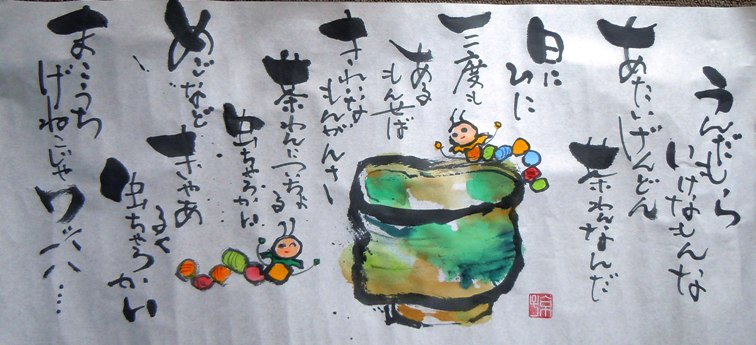 うんだもら
いけなもんな
あたいげんどん
茶わんなんだ
日に
ひに
三度も
ある
もんせば
きれいな
もんがんさー
茶わんにつちょ
る
虫ちゃろかい
めごなど
きゃあ
るく
虫ちゃろかい
まこち
げねこじゃ
ワハハ・・・・